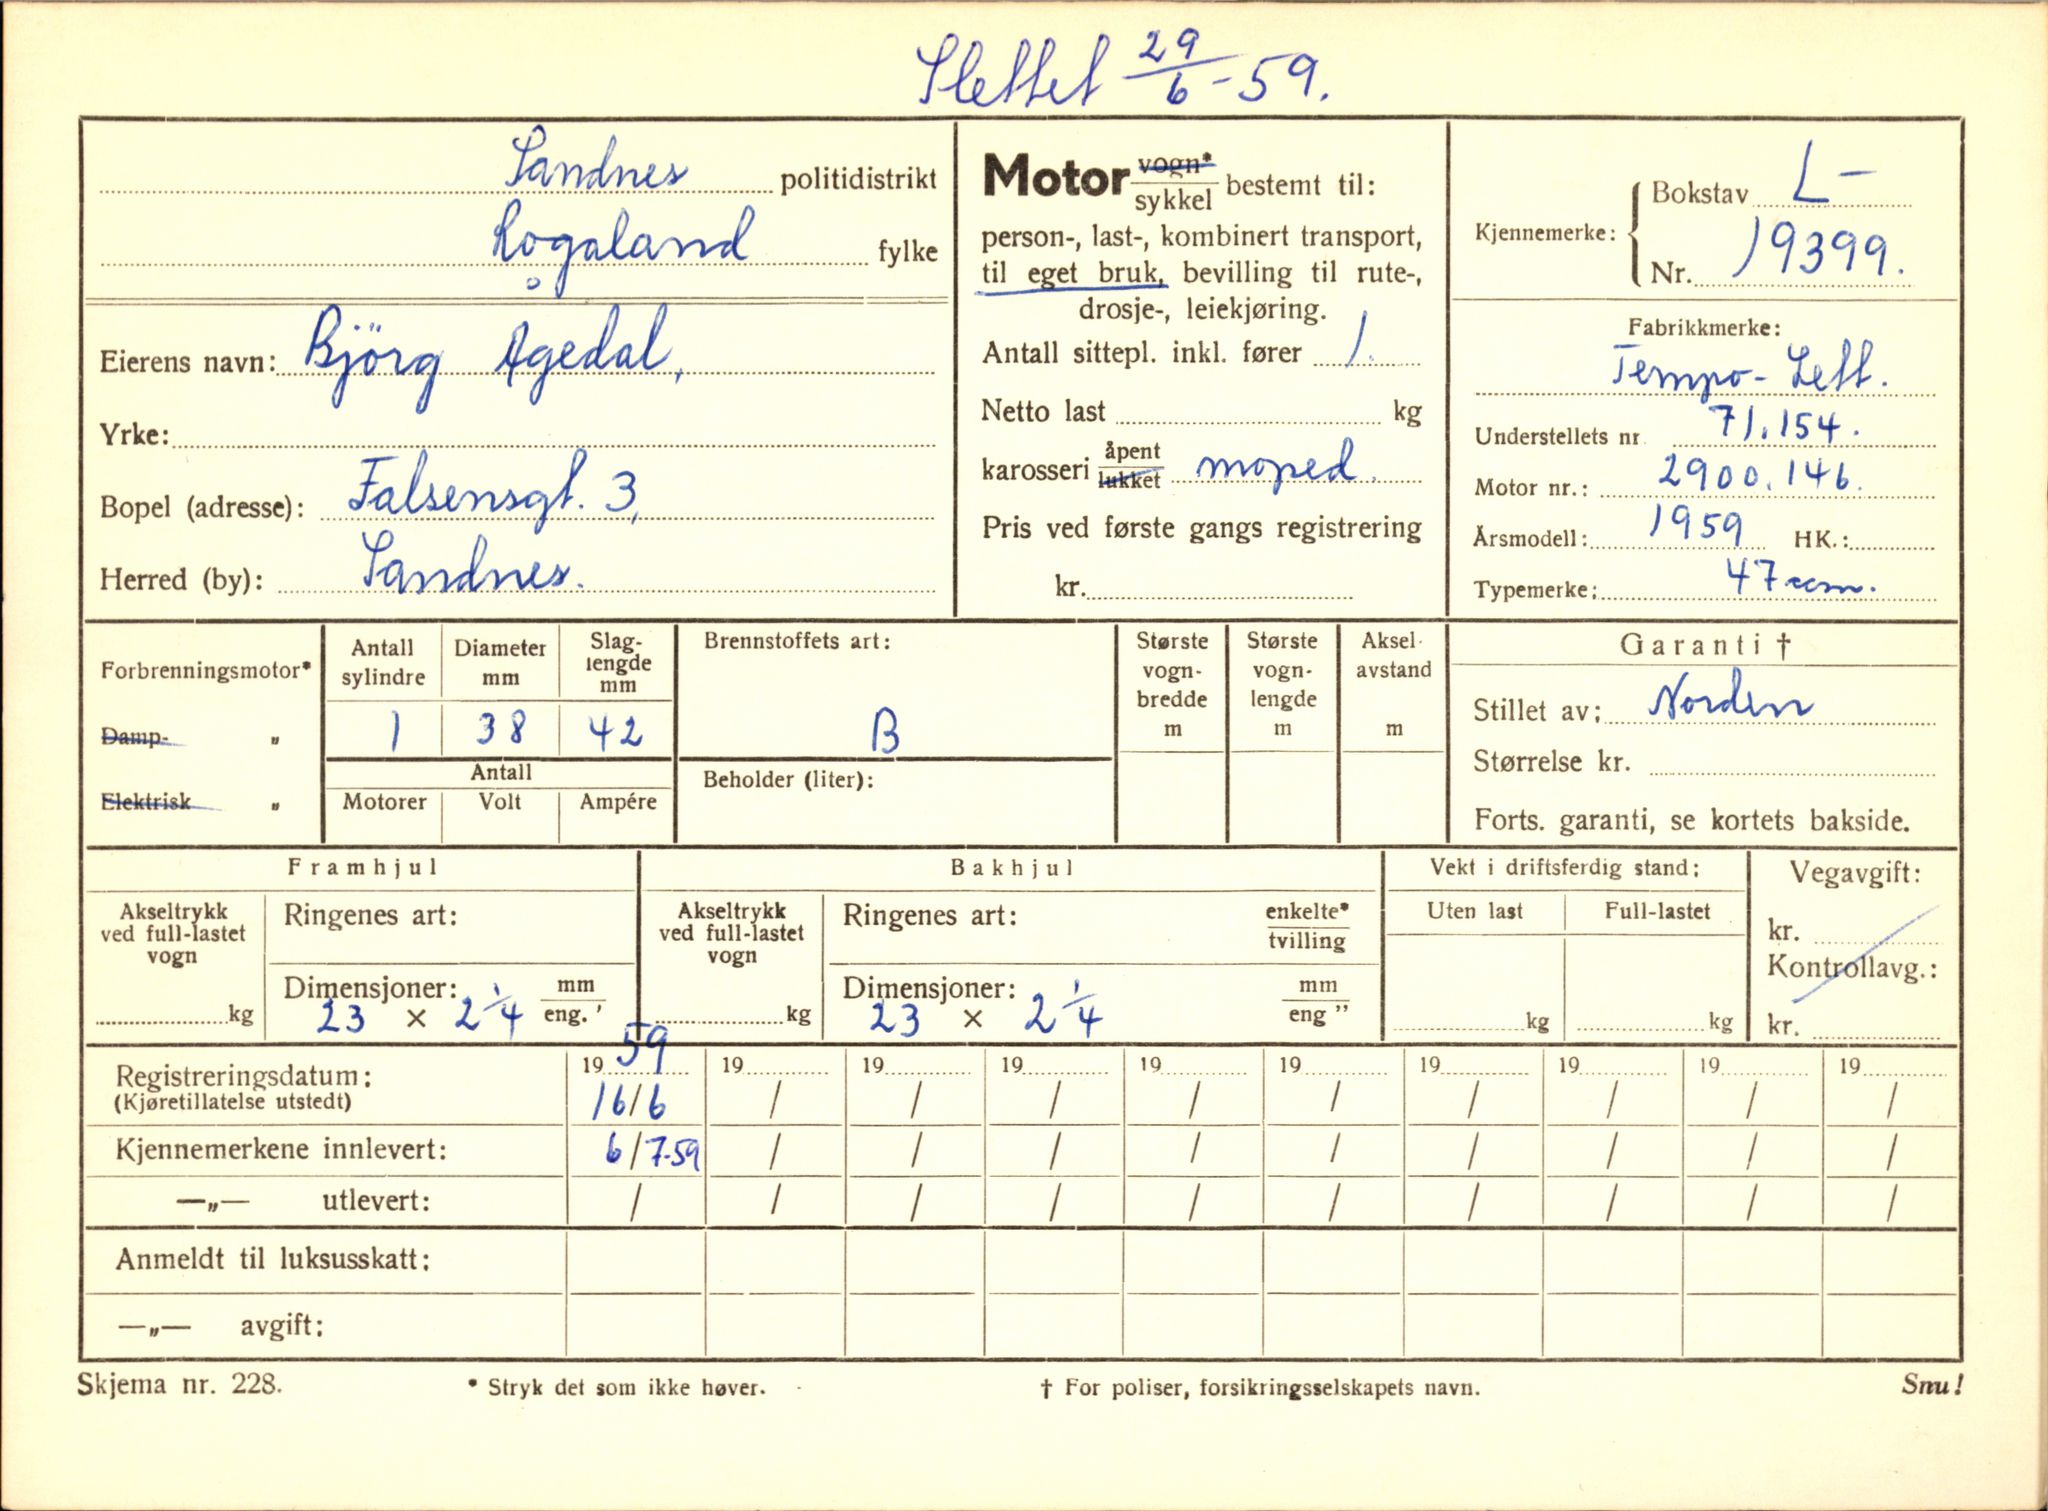 Slettet 29/6-59.
Sandnes politidistrikt
Rogaland fylke
Eierens navn: Björg Ågedal,
Yrke:
Bopel (adresse): Falsensgt. 3,
Herred (by): Sandnes.
Motor vogn*/sykkel bestemt til:
person-, last-, kombinert transport,
til eget bruk, bevilling til rute-,
drosje-, leiekjøring.
Antall sittepl. inkl. fører 1.
Netto last kg
karosseri åpent/lukket moped.
Pris ved første gangs registrering
kr.
Kjennemerke: Bokstav L-
Nr. 19399.
Fabrikkmerke:
Tempo-Lett.
Understellets nr 71.154.
Motor nr.: 2900.146.
Årsmodell: 1959 HK.:
Typemerke: 47 ccm.
Forbrenningsmotor*
Damp- „
Elektrisk „
Antall sylindre
Diameter mm
Slag-lengde mm
1 38 42
Antall
Motorer Volt Ampére
Brennstoffets art:
B
Beholder (liter):
Største vogn-bredde m
Største vogn-lengde m
Aksel-avstand m
Garanti †
Stillet av: Norden
Størrelse kr.
Forts. garanti, se kortets bakside.
Framhjul
Akseltrykk ved full-lastet vogn
kg
Ringenes art:
Dimensjoner: mm/eng.'
23 x 2 1/4
Bakhjul
Akseltrykk ved full-lastet vogn
kg
Ringenes art: enkelte*/tvilling
Dimensjoner: mm/eng "
23 x 2 1/4
Vekt i driftsferdig stand:
Uten last Full-lastet
kg kg
Vegavgift:
kr.
Kontrollavg.:
kr.
Registreringsdatum: 1959 19 19 19 19 19 19 19 19 19
(Kjøretillatelse utstedt) 16/6 / / / / / / / / /
Kjennemerkene innlevert: 6/7-59 / / / / / / / / /
—„— utlevert: / / / / / / / / / /
Anmeldt til luksusskatt:
—„— avgift:
Skjema nr. 228. * Stryk det som ikke høver. † For poliser, forsikringsselskapets navn. Snu!